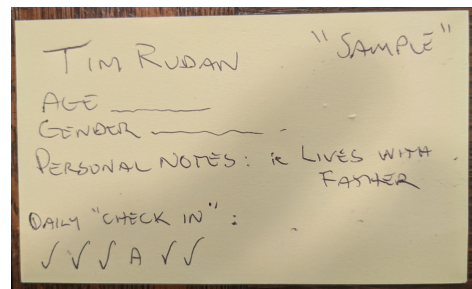 TIM RUDAN "SAMPLE"
AGE ______
GENDER ______
PERSONAL NOTES: ie LIVES WITH
FATHER
DAILY "CHECK IN":
✓ ✓ ✓ A ✓ ✓